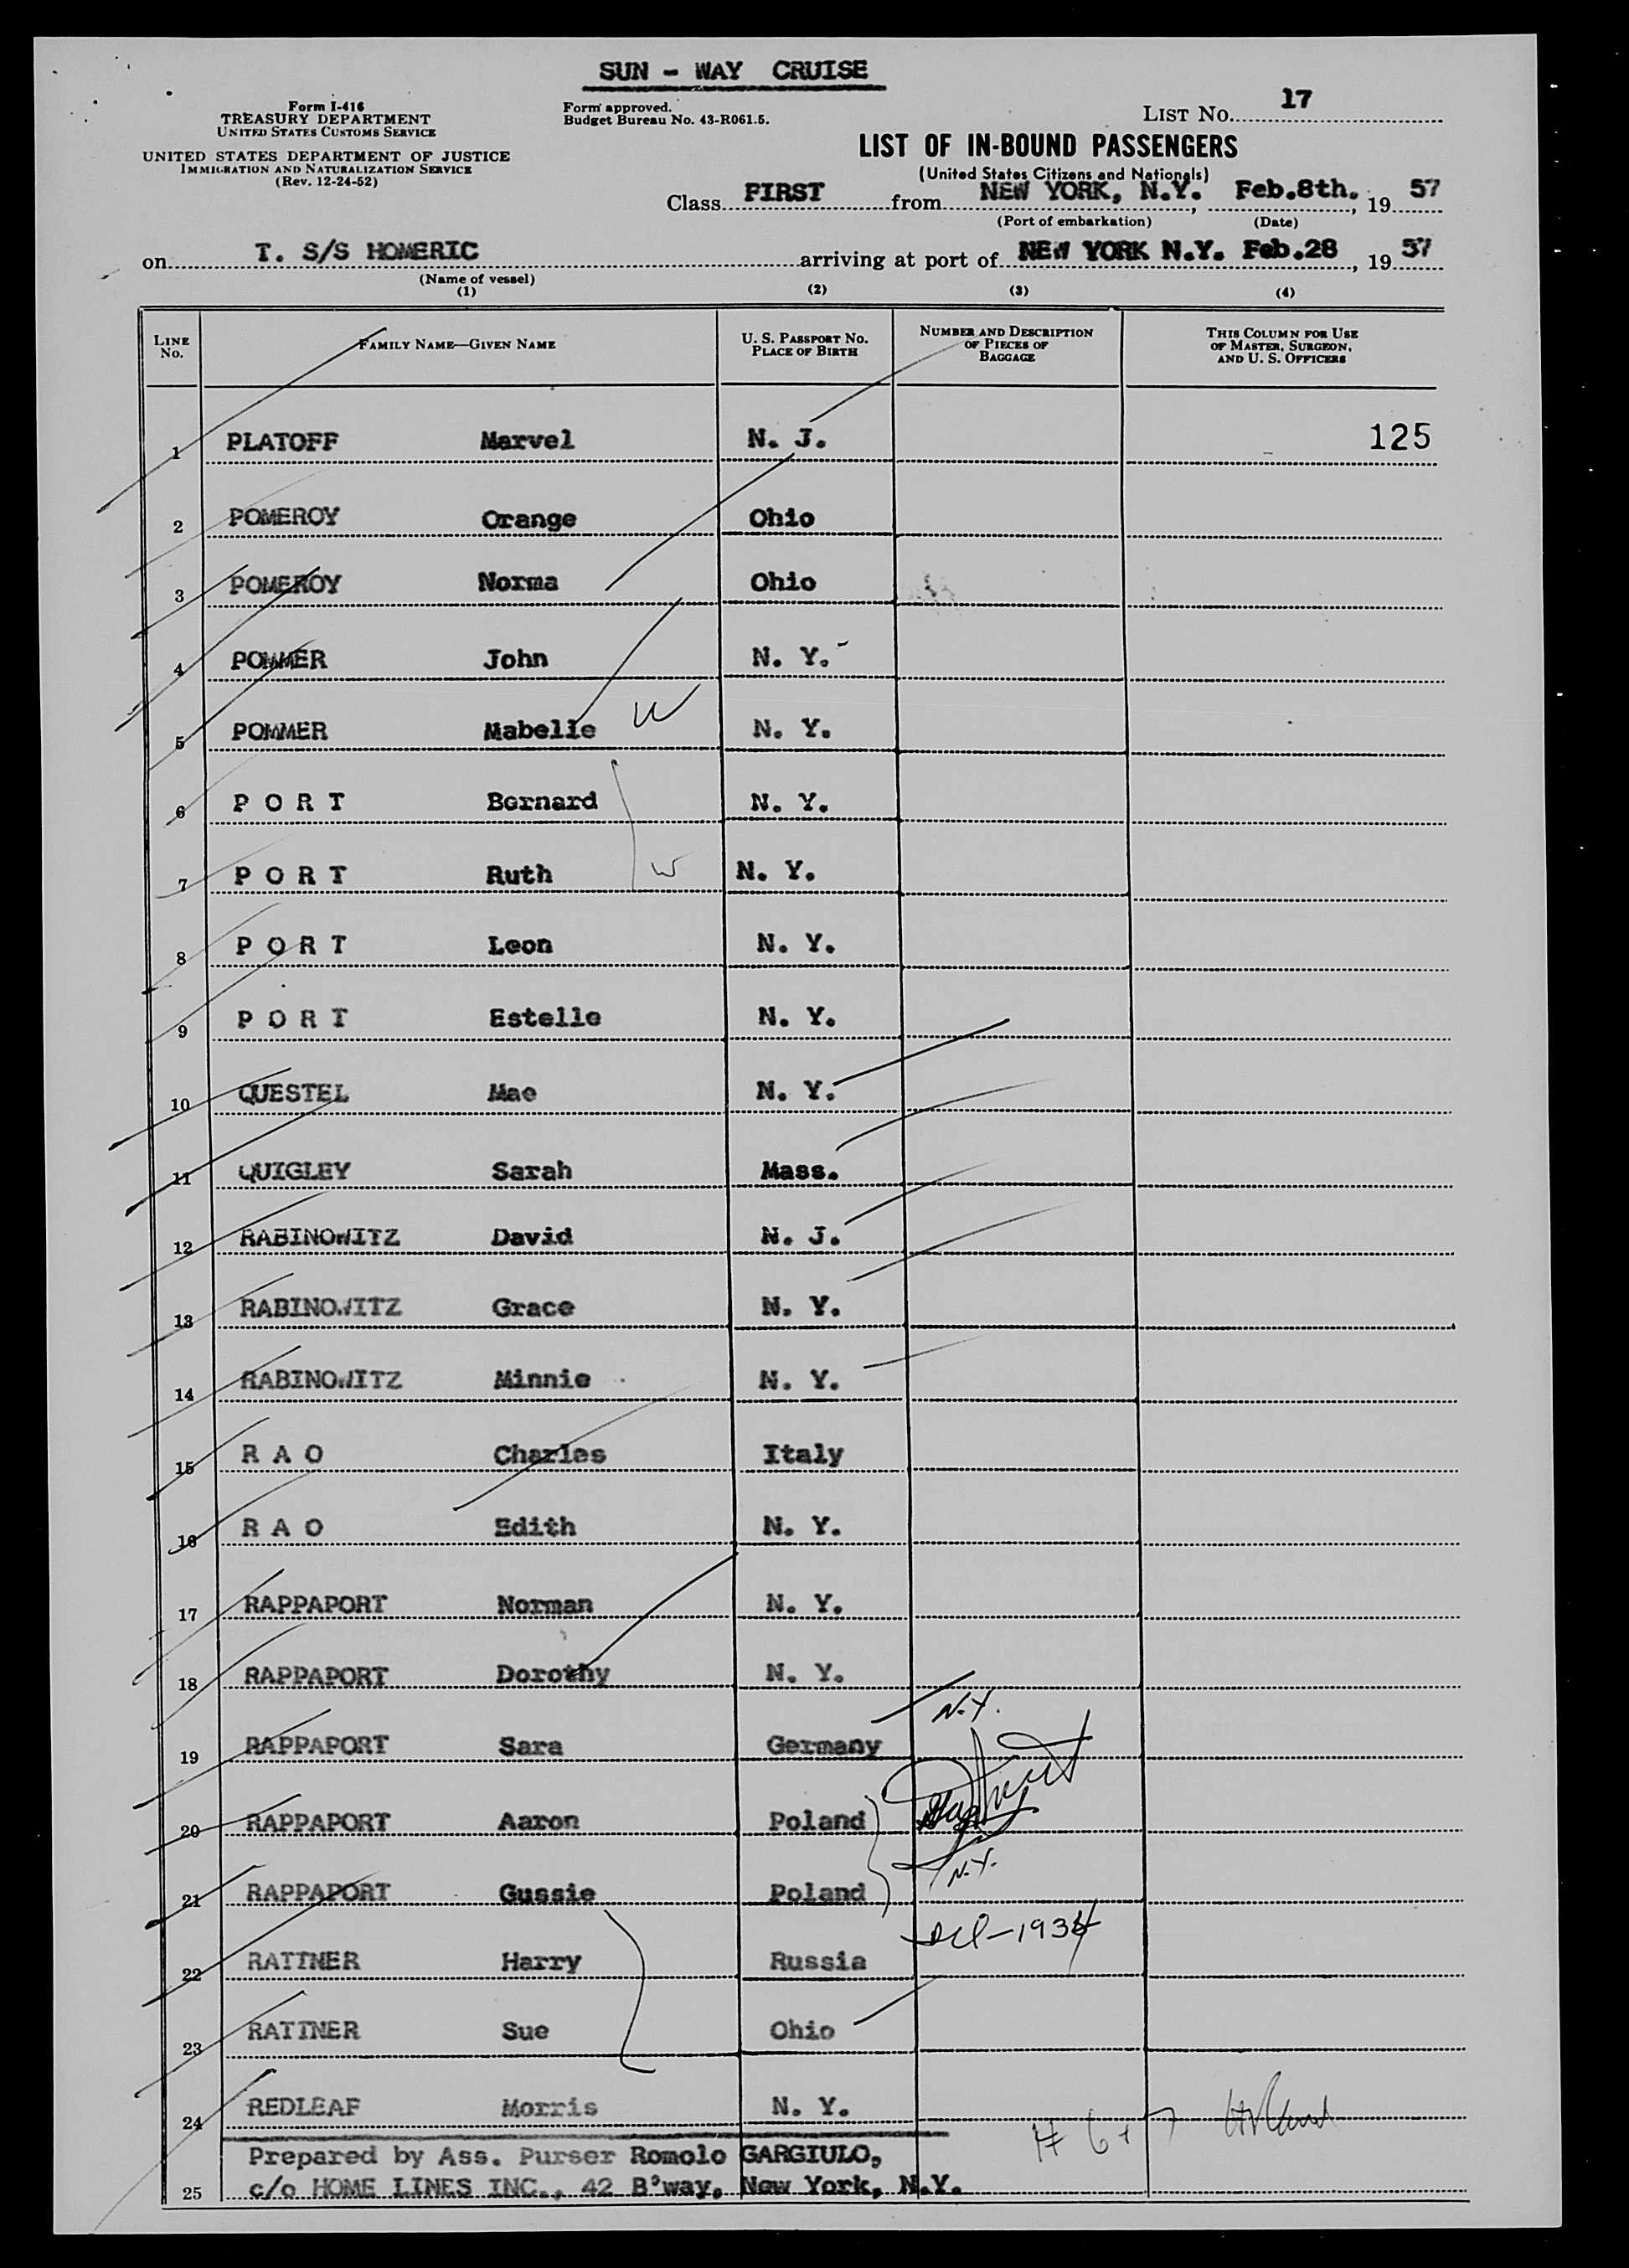 SUN - WAY CRUISE
Form I-416
TREASURY DEPARTMENT
UNITED STATES CUSTOMS SERVICE
UNITED STATES DEPARTMENT OF JUSTICE
IMMIGRATION AND NATURALIZATION SERVICE
(Rev. 12-24-52)
Form approved.
Budget Bureau No. 43-R061.5.
LIST No. 17
LIST OF IN-BOUND PASSENGERS
(United States Citizens and Nationals)
Class FIRST from NEW YORK, N.Y. , Feb.8th. , 19 57
(Port of embarkation) (Date)
on T. S/S HOMERIC arriving at port of NEW YORK N.Y. Feb.28 , 19 57
(Name of vessel)
(1) (2) (3) (4)
LINE No. FAMILY NAME—GIVEN NAME U. S. PASSPORT No. PLACE OF BIRTH NUMBER AND DESCRIPTION OF PIECES OF BAGGAGE THIS COLUMN FOR USE OF MASTER, SURGEON, AND U. S. OFFICERS
1 PLATOFF Marvel N. J. 125
2 POMEROY Orange Ohio
3 POMEROY Norma Ohio
4 POMMER John N. Y.
5 POMMER Mabelle W N. Y.
6 P O R T Bernard N. Y.
7 P O R T Ruth W N. Y.
8 P O R T Leon N. Y.
9 P O R T Estelle N. Y.
10 QUESTEL Mae N. Y.
11 QUIGLEY Sarah Mass.
12 RABINOWITZ David N. J.
13 RABINOWITZ Grace N. Y.
14 RABINOWITZ Minnie N. Y.
15 R A O Charles Italy
16 R A O Edith N. Y.
17 RAPPAPORT Norman N. Y.
18 RAPPAPORT Dorothy N. Y.
N.Y.
19 RAPPAPORT Sara Germany
20 RAPPAPORT Aaron Poland
N.Y.
21 RAPPAPORT Gussie Poland
22 RATTNER Harry Russia
23 RATTNER Sue Ohio
24 REDLEAF Morris N. Y.
# 6 + 7
Prepared by Ass. Purser Romolo GARGIULO,
25 c/o HOME LINES INC., 42 B'way, New York, N.Y.